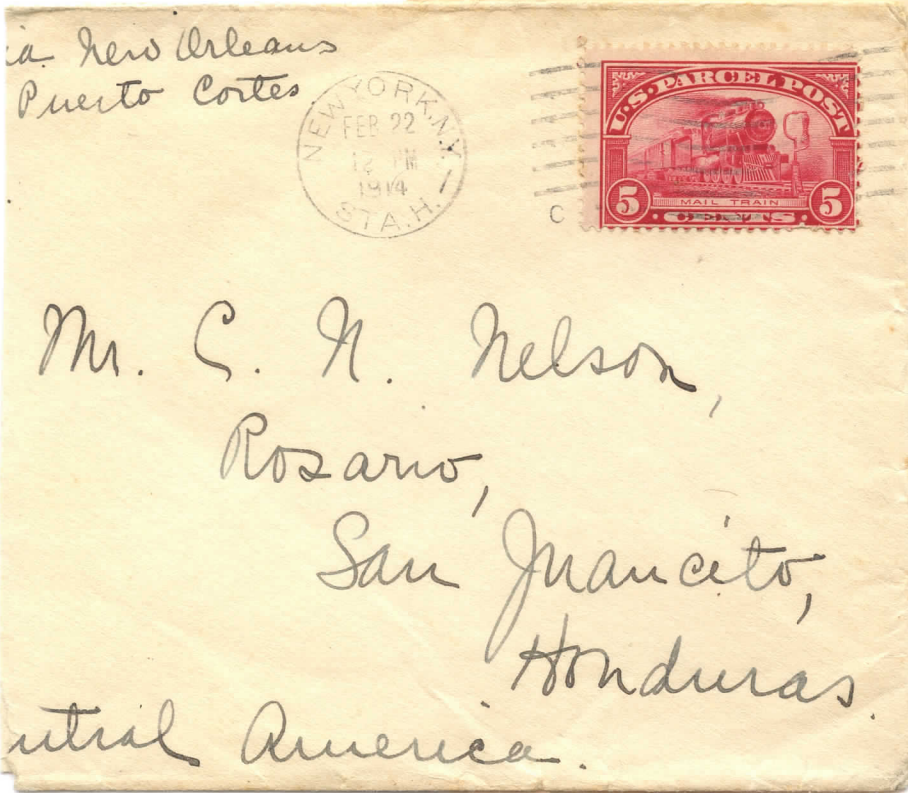 ia New Orleans
Puerto Cortes
NEW YORK, N.Y.
FEB 22
12 PM
1914
STA. H.
U.S. PARCEL POST
5 MAIL TRAIN 5
CENTS
C
Mr. C. N. Nelson,
Rosario,
San Juancito,
Honduras.
ntral America.